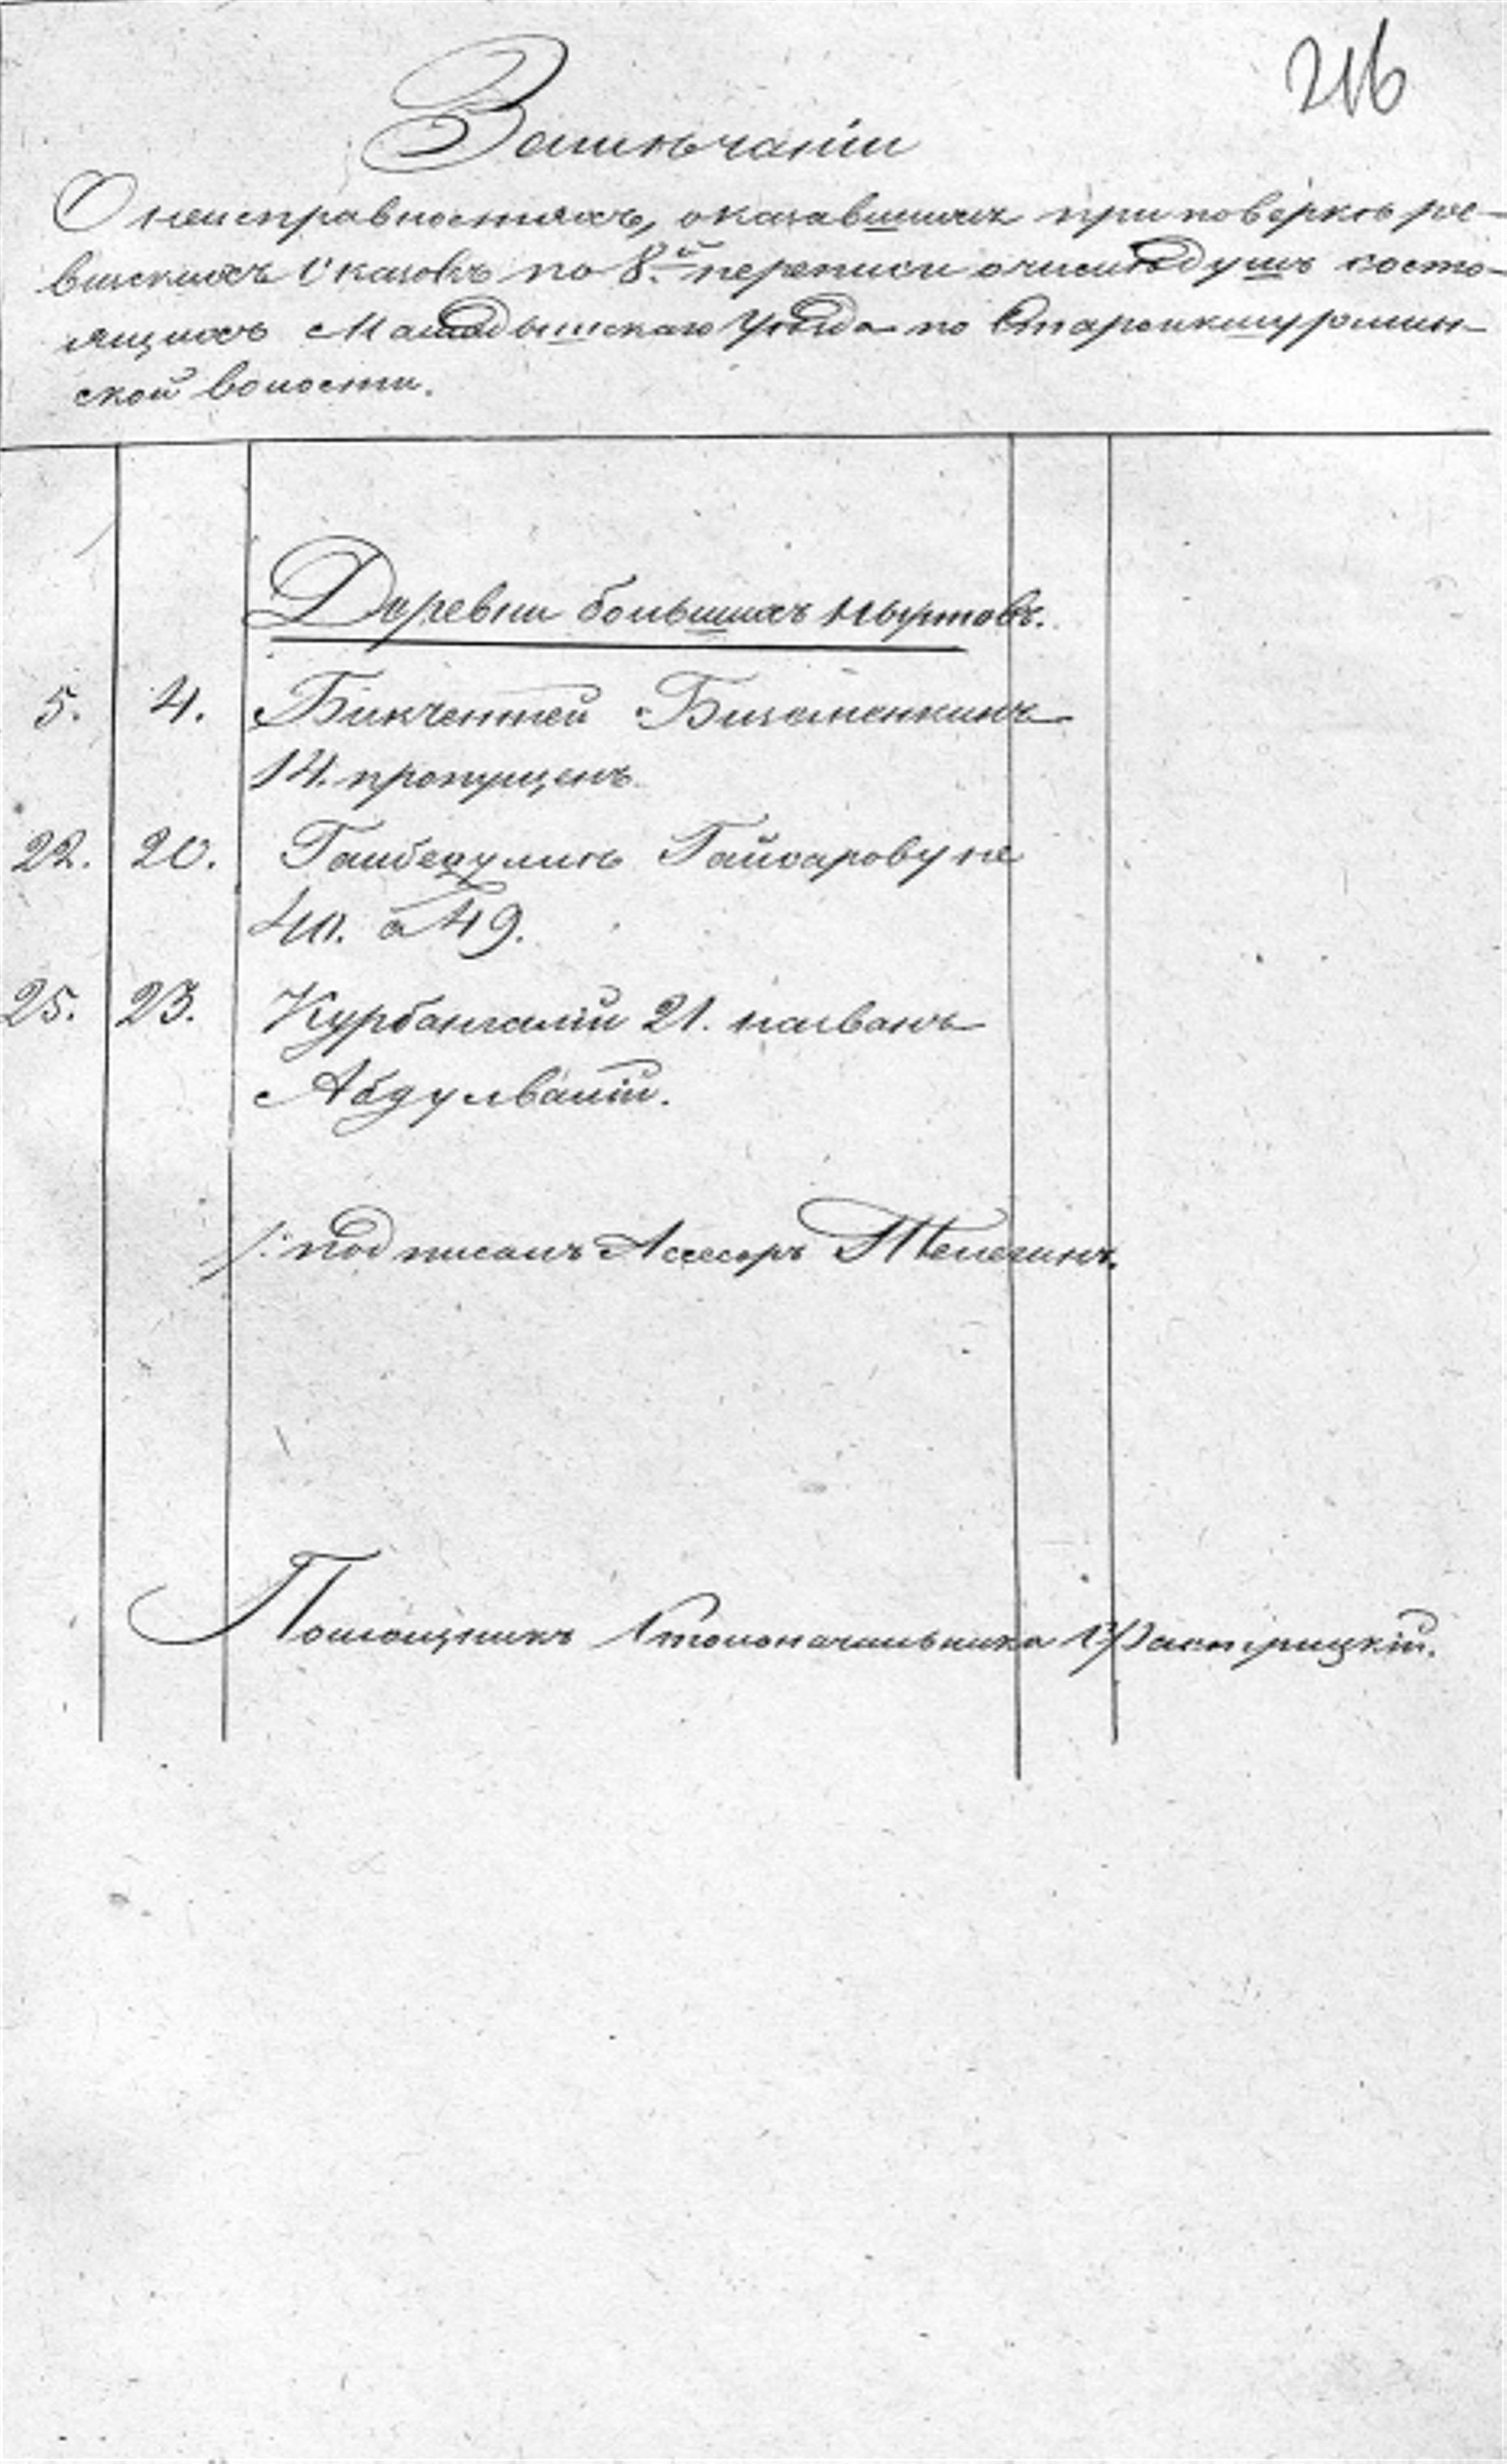 216
Замѣчаніи
О неисправностяхъ, оказавшихся при повѣркѣ ре-
визскихъ сказокъ по 8.й переписи о числѣ душъ состо-
ящихъ Мамадышскаго Уѣзда по Старо
ской волости.
Деревни большихъ Ныртовъ.
5. 4. Бикчентей
14. пропущенъ.
22. 20. Гайсарову не
40. а 49.
25. 23. Курбангалій 21. названъ
Абдулвалій.
/: подписалъ Асессоръ Телегинъ.
Помощникъ Столоначальника